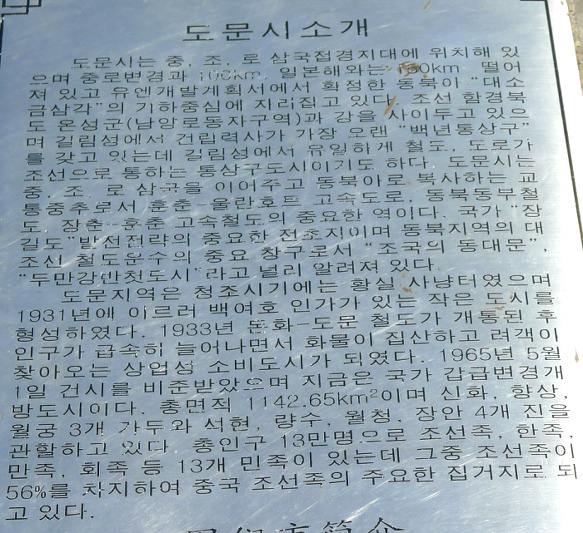 도문시소개
도문시는 중, 조, 로 삼국접경지대에 위치해 있
으며 중로변경과 100km, 일본해와는 떨어
져 있고 유엔개발계획서에서 확정한 동북아 "대소
금삼각"의 기하중심에 자리잡고 있다. 조선 함경북
도 온성군(남양로동자구역)과 강을 사이두고 있으
며 길림성에서 건립력사가 가장 오랜 "백년통상구"
를 갖고 있는데 길림성에서 유일하게 철도, 도로가
조선으로 통하는 통상구도시이기도 하다. 도문시는
중, 조, 로 삼국을 이어주고 동북아로 복사하는 교
통중추로서 훈춘-울란호트 고속도로, 동북동부철
도, 장춘-훈춘 고속철도의 중요한 역이다. 국가 "장
길도"발전전략의 중요한 전초지이며 동북지역의 대
조선 철도운수의 중요 창구로서 "조국의 동대문",
"두만강반첫도시"라고 널리 알려져 있다.
도문지역은 청조시기에는 황실 사냥터였으며
1931년에 이르러 백여호 인가가 있는 작은 도시를
형성하였다. 1933년 돈화-도문 철도가 개통된 후
인구가 급속히 늘어나면서 화물이 집산하고 려객이
찾아오는 상업성 소비도시가 되였다. 1965년 5월
1일 건시를 비준받았으며 지금은 국가 갑급변경개
방도시이다. 총면적 1142.65km²이며 신화, 향상,
월궁 3개 가두와 석현, 량수, 월청, 장안 4개 진을
관할하고 있다. 총인구 13만명으로 조선족, 한족,
만족, 회족 등 13개 민족이 있는데 그중 조선족이
56%를 차지하여 중국 조선족의 주요한 집거지로 되
고 있다.